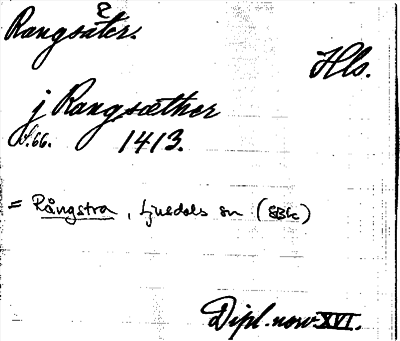 Rangsäter.
Hls.
j Rangsæther
s. 66. 1413.
= Rångstra, Ljusdals sn (EBk)
Dipl. norv. XVI.